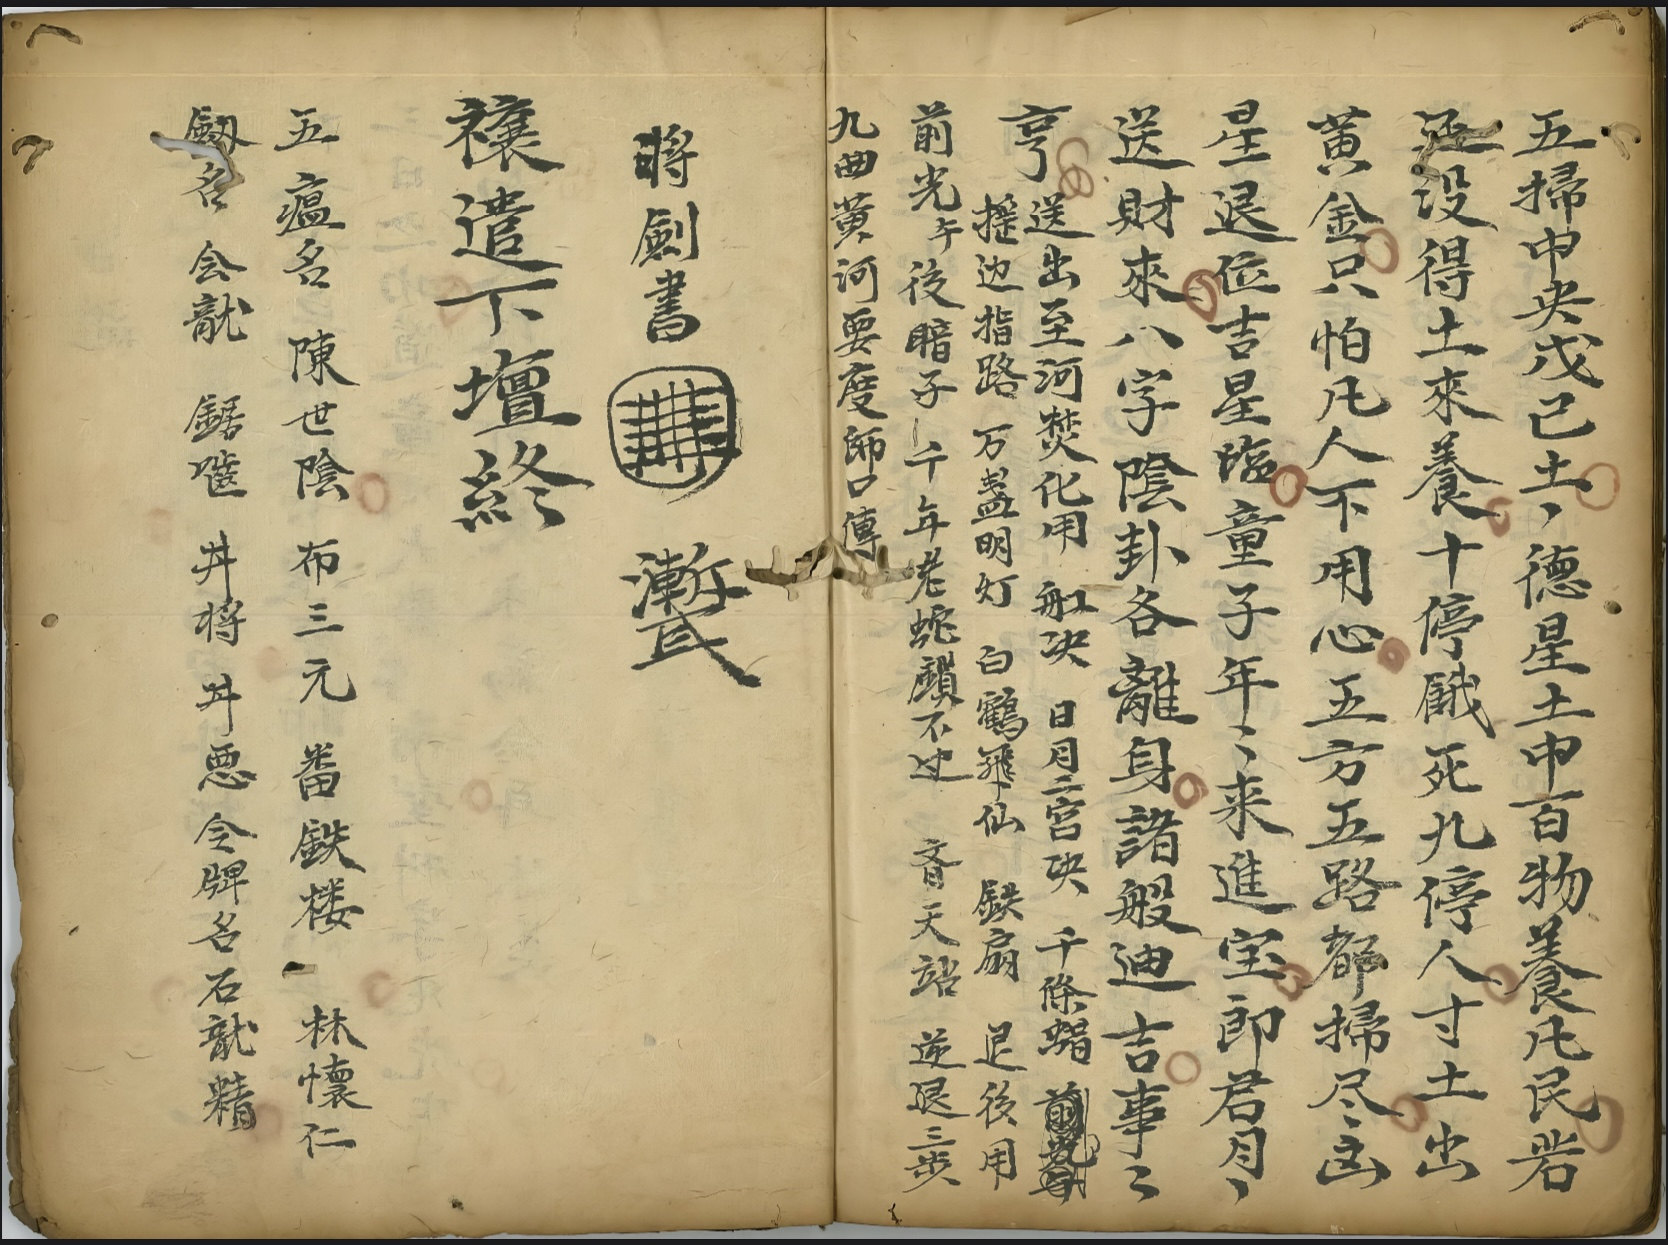 五掃中央戊己土丶德星土中百物養凡民岩
还没得土來養十停餓死九停人寸土出
黄金只怕凡人不用心五方五路都掃尽凶
星退位吉星臨童子年丶丶来進宝郎君月丶
送財來八字陰卦各離身諸般迪吉事〻
亨 送出至河焚化用 船决 日月二宮决 千條蝐
摇边指路 万盏明灯 白鶴飛仙 鉄扇 退後用
前光午後暗子 千年老蛇鎖不过 斉天站 逆退三步
九曲黄河要度師口傳
將劍書
禳遣下壇終
五瘟名 陳世陰 布三元 番鉄楼 林懷仁
劔名 会龍 鋸 丼将 丼悪 令牌名 石龍精